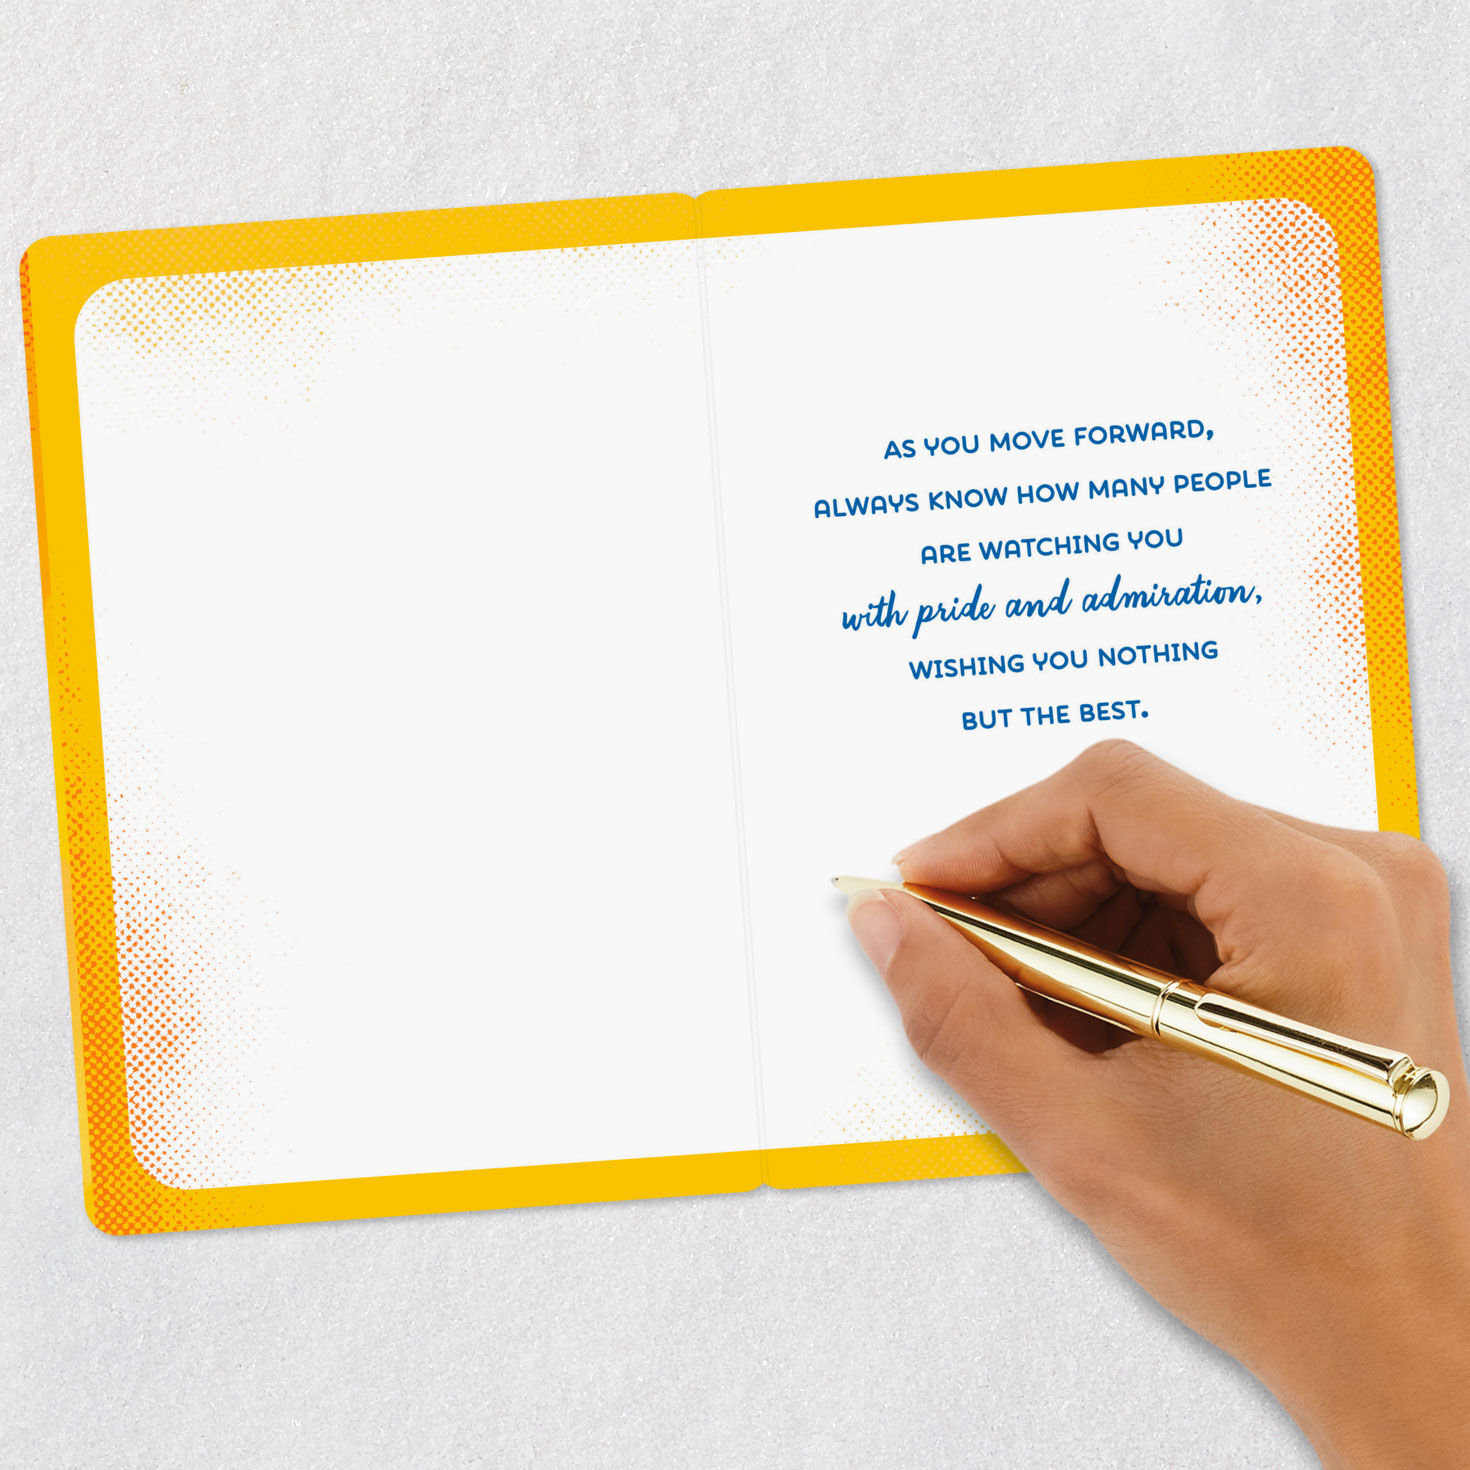 AS YOU MOVE FORWARD,
ALWAYS KNOW HOW MANY PEOPLE
ARE WATCHING YOU
with pride and admiration,
WISHING YOU NOTHING
BUT THE BEST.